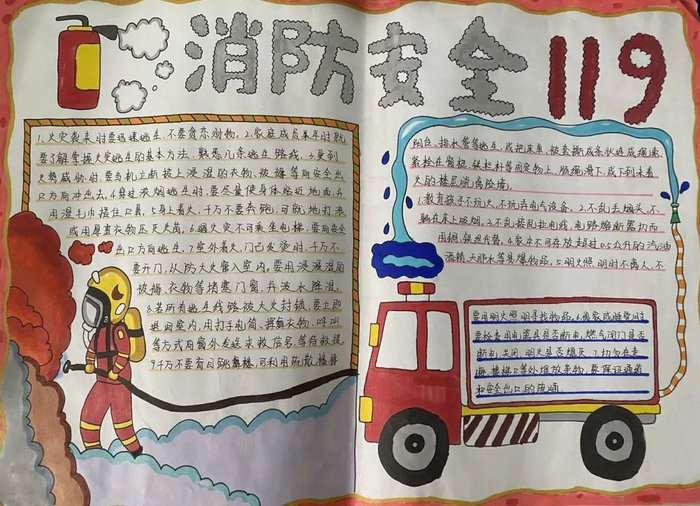 消防安全119
1.火灾袭来时要迅速逃生,不要贪恋财物。2.家庭成员平时就
要了解掌握火灾逃生的基本方法,熟悉几条逃生路线。3.受到
火势威胁时,要当机立断披上浸湿的衣物、被褥等向安全出
口方向冲出去。4.穿过浓烟逃生时,要尽量使身体贴近地面,并
用湿毛巾捂住口鼻。5.身上着火,千万不要奔跑,可就地打滚
或用厚重衣物压灭火苗。6.遇火灾不可乘坐电梯,要向安全
出口方向逃生。7.室外着火,门已发烫时,千万不
要开门,以防大火窜入室内,要用浸湿的
被褥、衣物等堵塞门窗,并泼水降温。
8.若所有逃生线路被大火封锁,要立即
退回室内,用打手电筒、挥舞衣物、呼叫
等方式向窗外发送求救信号,等待救援
9.千万不要盲目跳楼,可利用疏散楼梯
阳台、排水管等逃生,或把床单、被套撕成条状连成绳索,
紧拴在窗框、铁栏杆等固定物上,顺绳滑下,或下到未着
火的楼层脱离险境。
1.教育孩子不玩火,不玩弄电气设备。2.不乱丢烟头,不
躺在床上吸烟。3.不乱接乱拉电线,电路熔断器切勿
用铜、铁丝代替。4.家中不可存放超过0.5公升的汽油
酒精、天那水等易燃物品。5.明火照明时不离人,不
要用明火照明寻找物品。6.离家或睡觉时
要检查用电器具是否断电,燃气阀门是否
关闭,明火是否熄灭。7.切勿在走
廊、楼梯口等处堆放杂物,要保证通道
和安全出口的畅通。